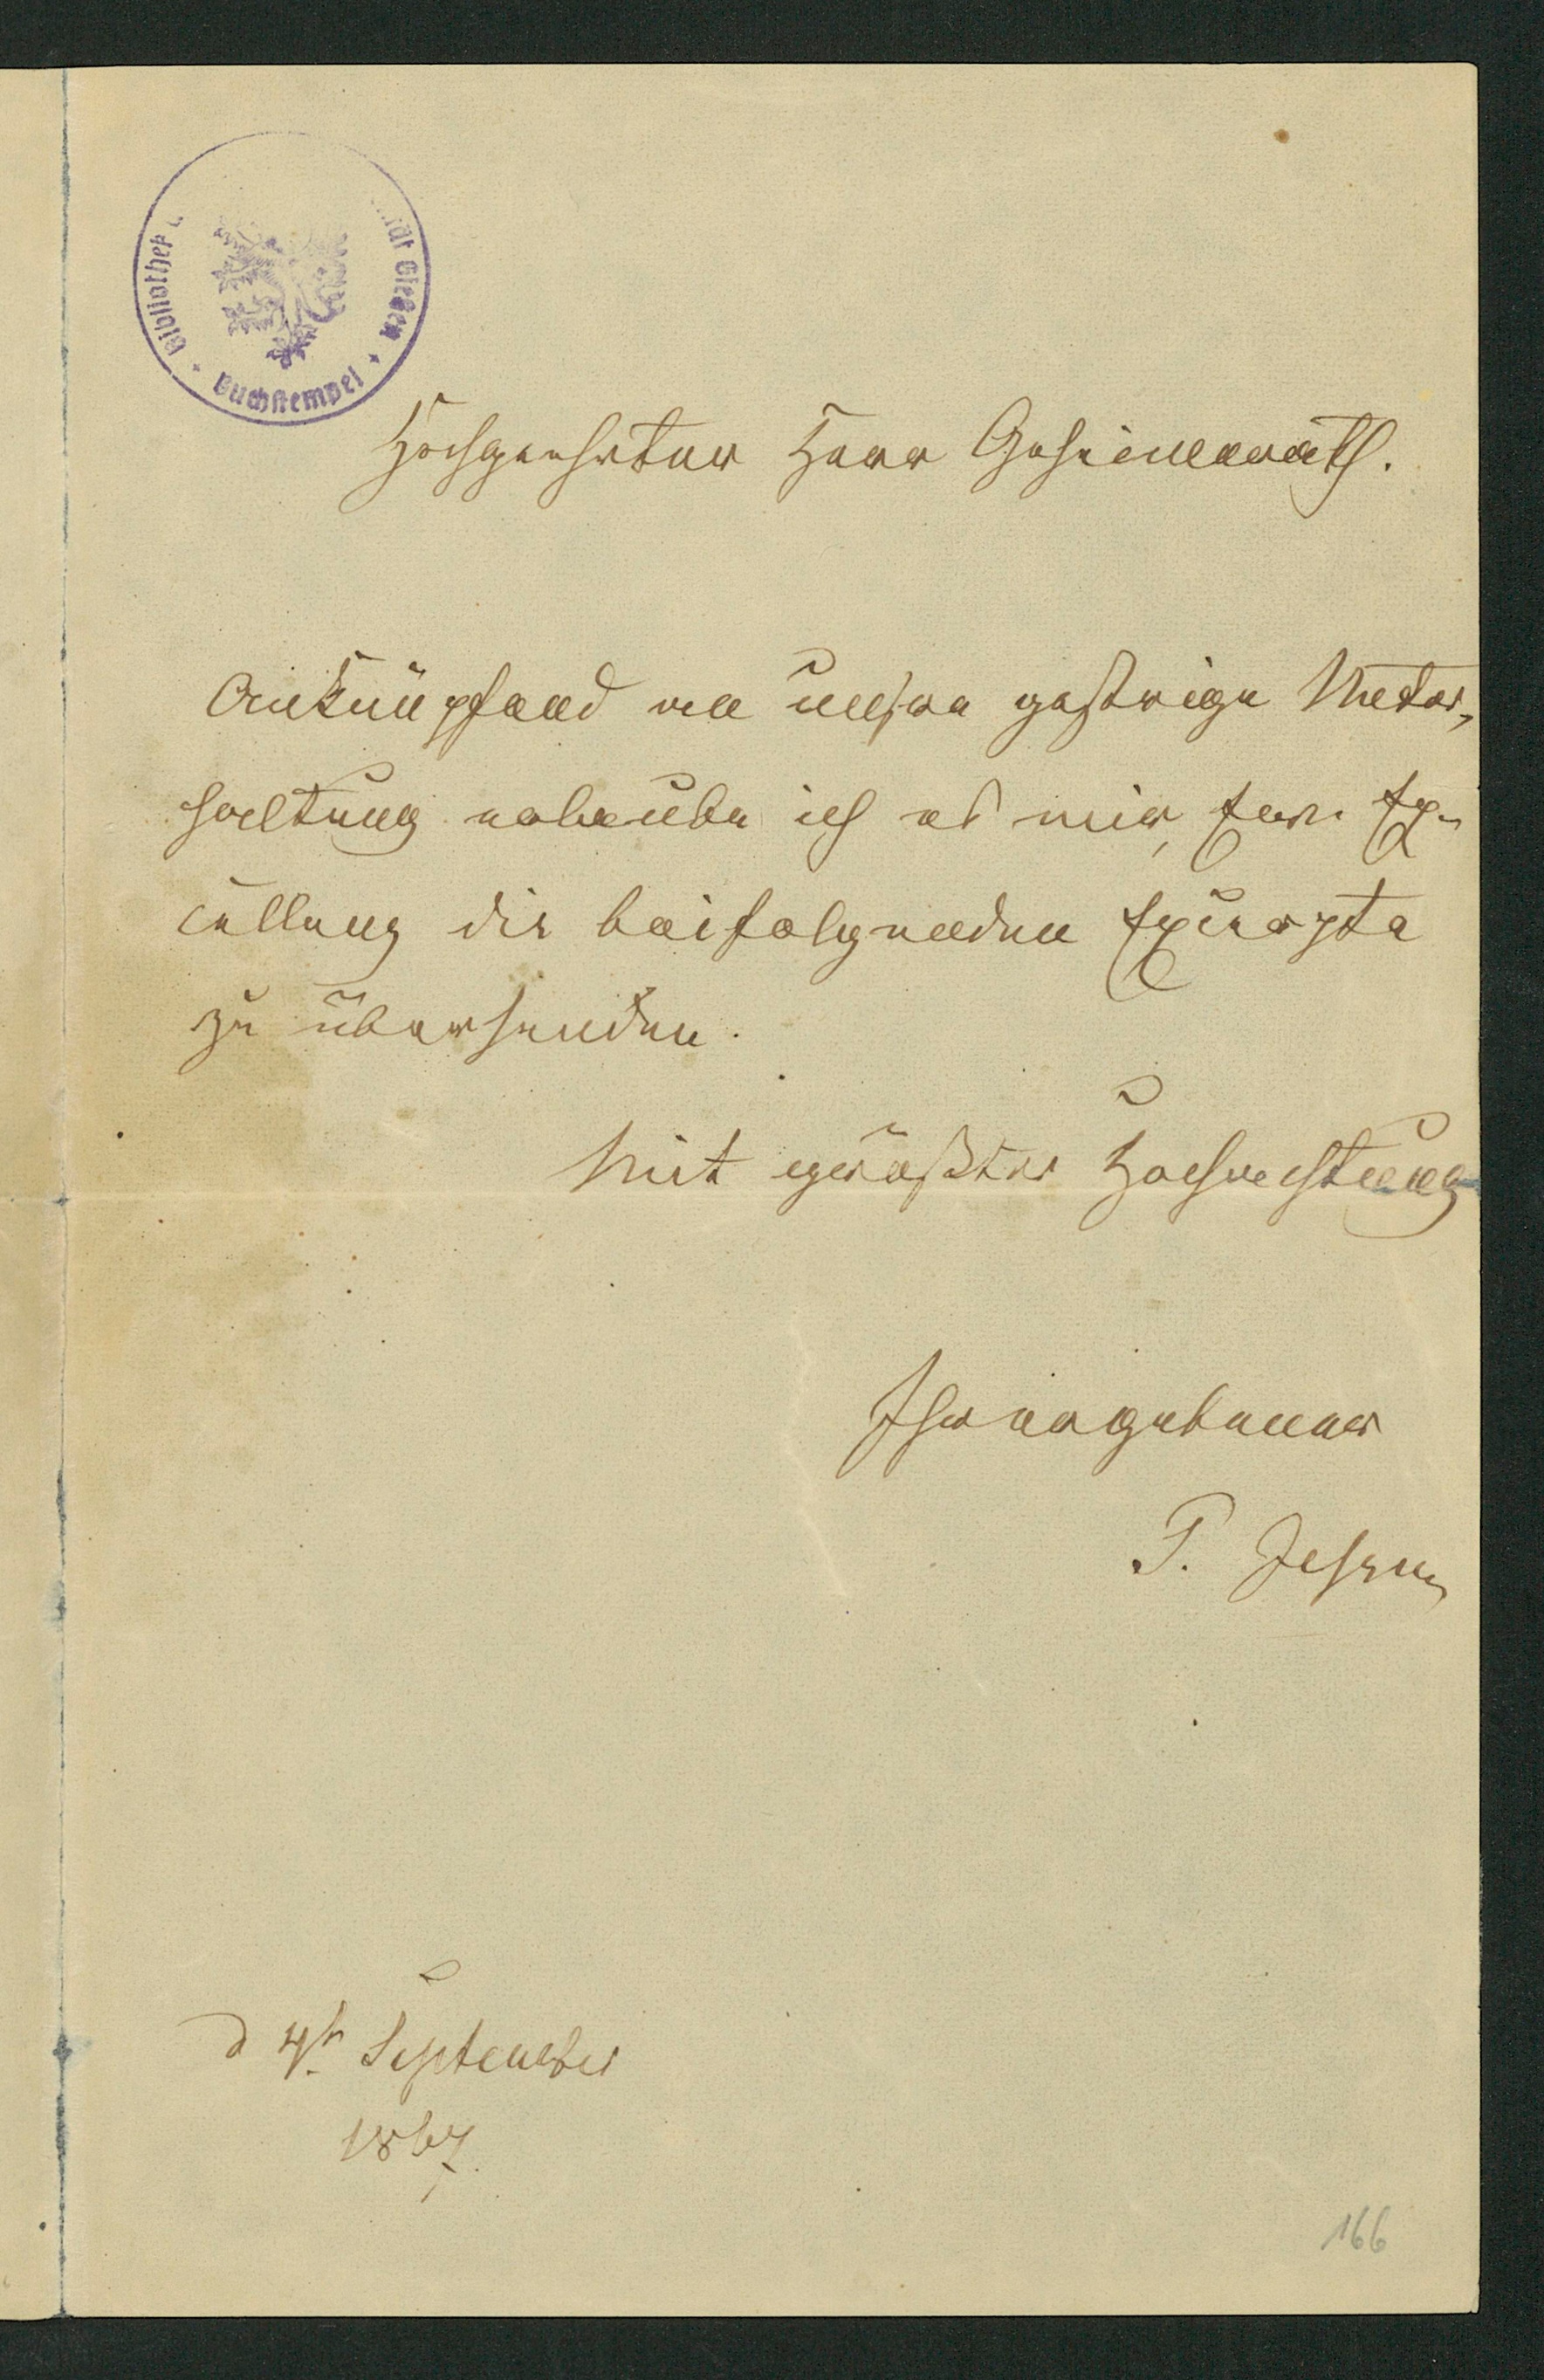 Bibliothek d
tät Gießen
Buchstempel
Hochgeehrter Herr Geheimerath.
Anknüpfend an unsere gestrige Unter-
haltung erlaube ich es mir, Ew. Ex-
cellenz die beifolgenden Excerpte
zu übersenden.
Mit größter Hochachtung
Ihr ergebener
P. Jessen
d 4n September
1867.
166